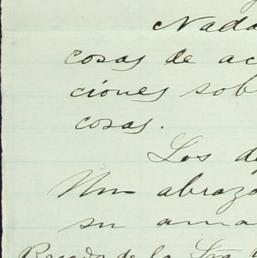 Nada
cosas de ac
ciones sob
cosas.
Los de
Un abrazo
su ama
de la Sra